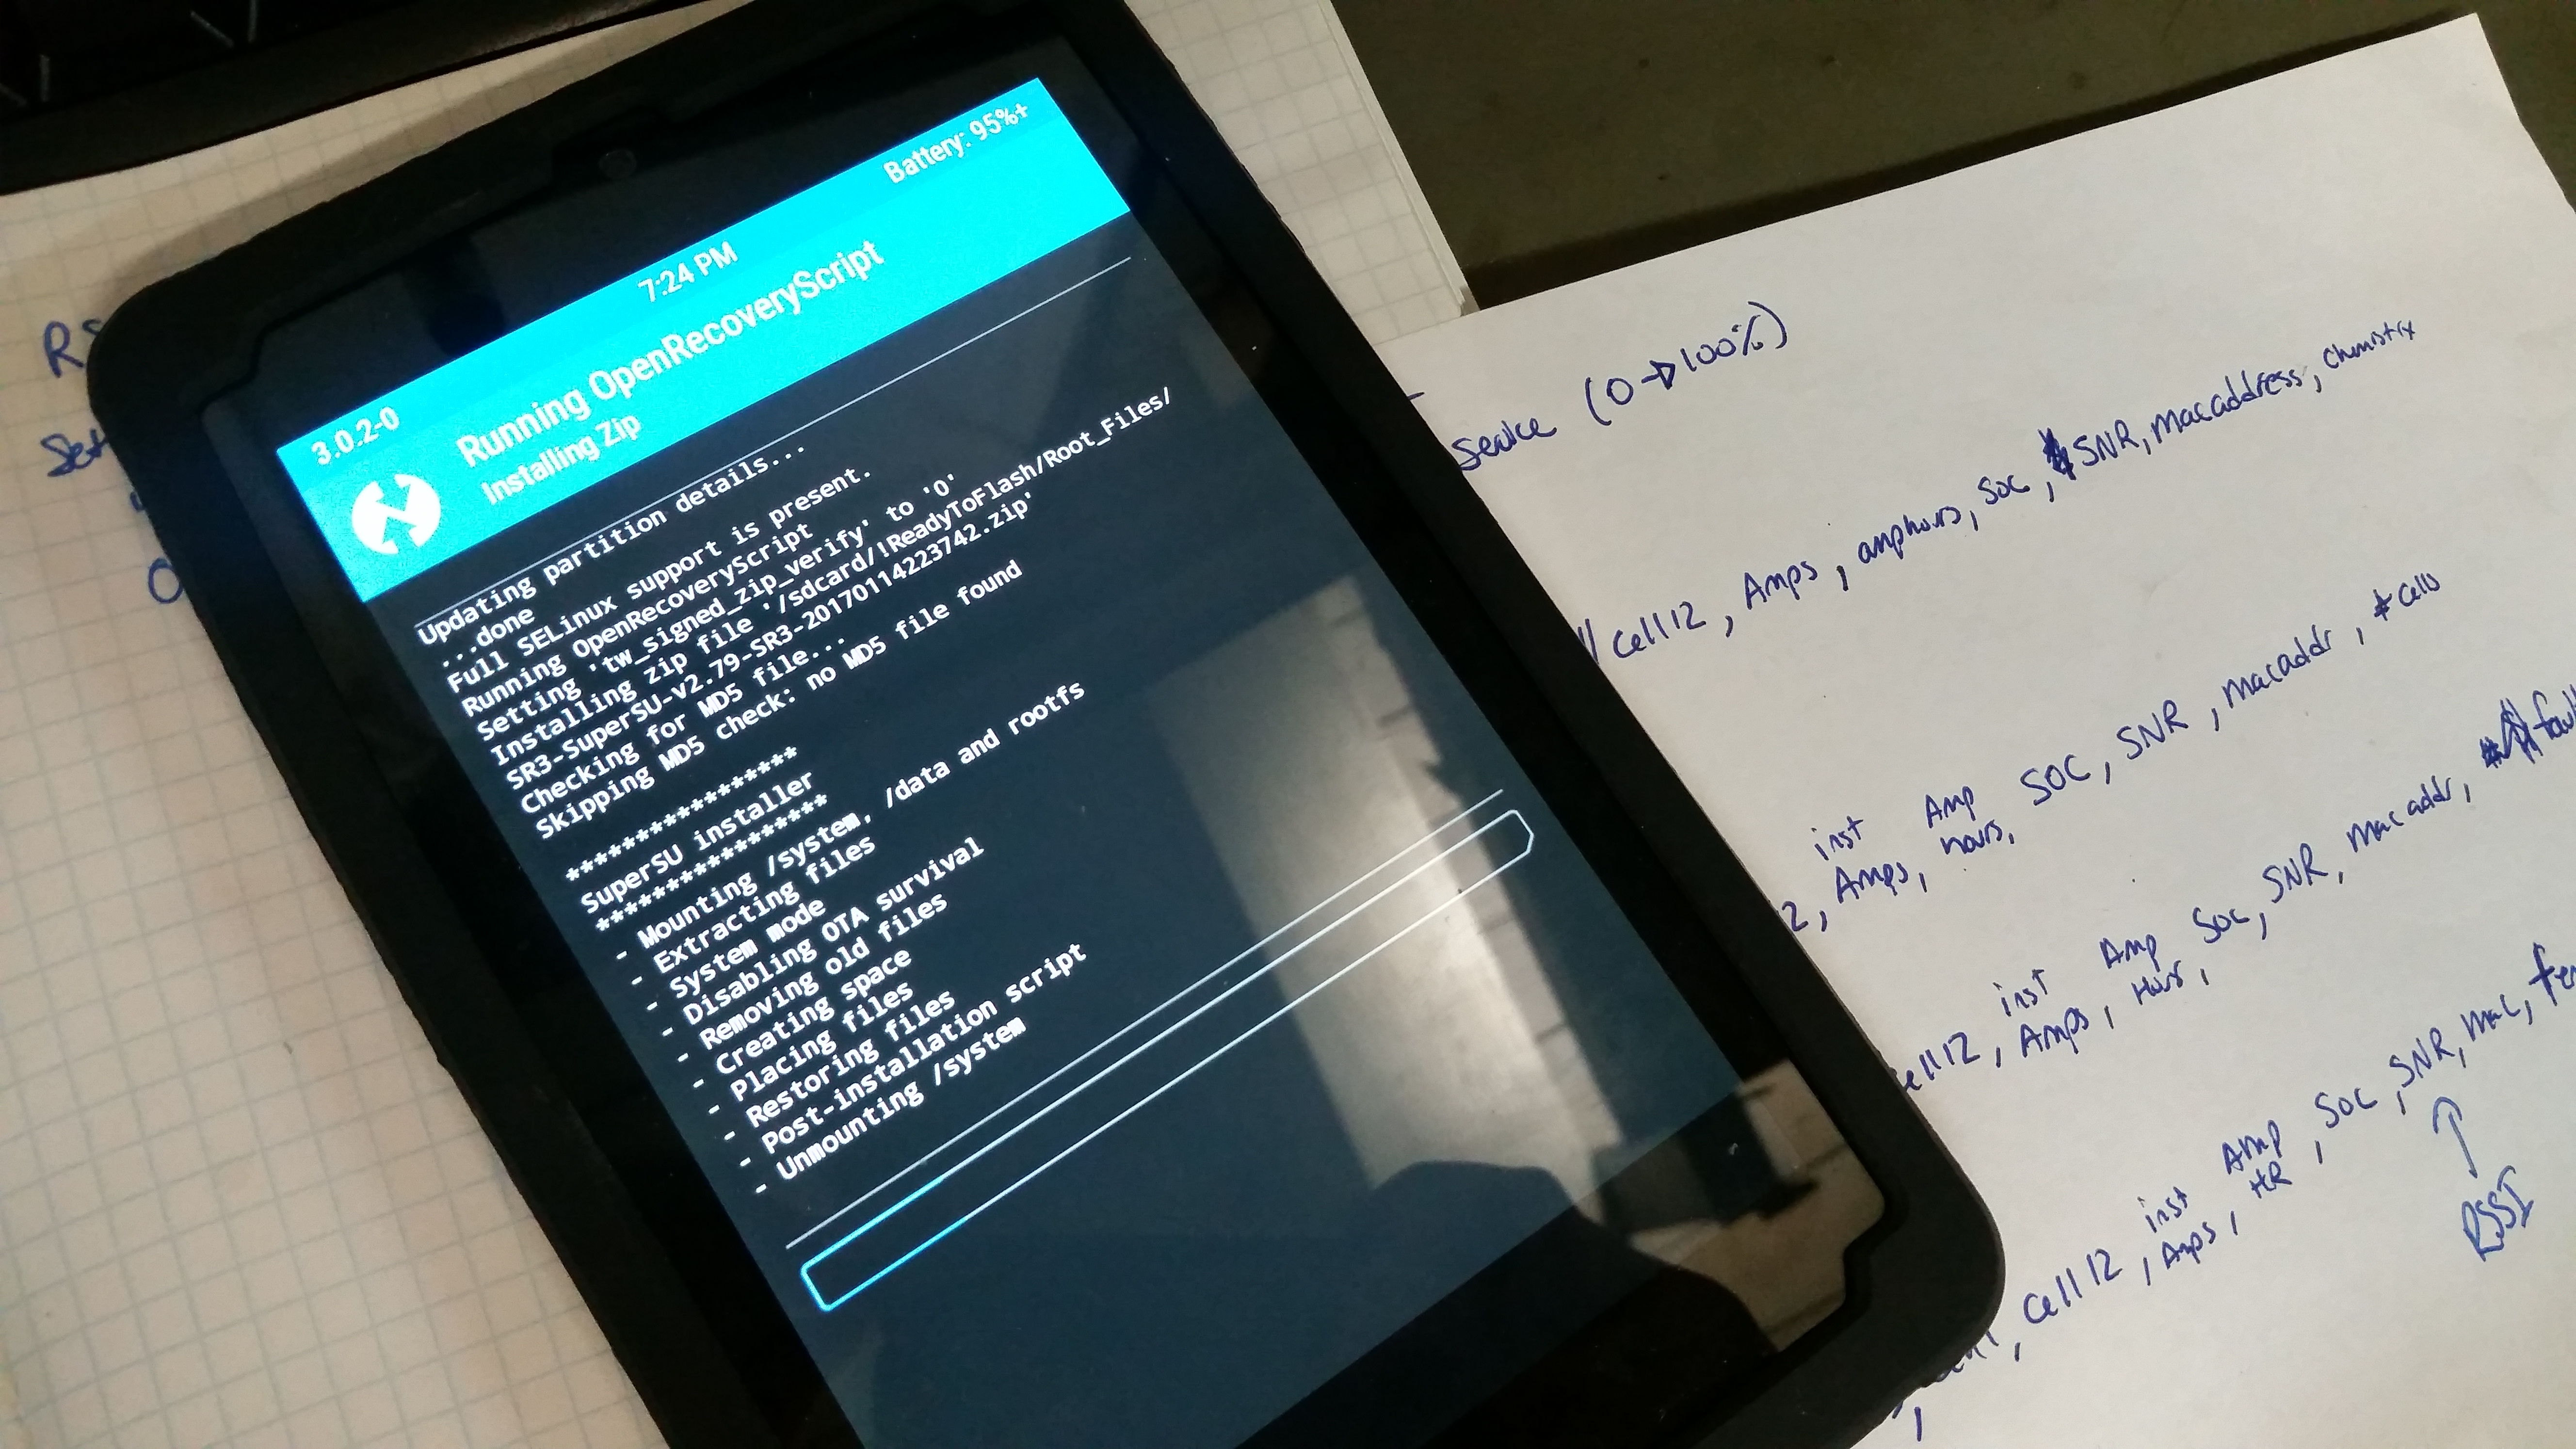 3.0.2-0 7:24 PM Battery: 95%+
Running OpenRecoveryScript
Installing Zip
Updating partition details...
...done
Full SELinux support is present.
Running OpenRecoveryScript
Setting 'tw_signed_zip_verify' to '0'
Installing zip file '/sdcard/!ReadyToFlash/Root_Files/
SR3-SuperSU-v2.79-SR3-20170114223742.zip'
Checking for MD5 file...
Skipping MD5 check: no MD5 file found
*****************
SuperSU installer
*****************
- Mounting /system, /data and rootfs
- Extracting files
- System mode
- Disabling OTA survival
- Removing old files
- Creating space
- Placing files
- Restoring files
- Post-installation script
- Unmounting /system
Service (0→100%)
Cell12, Amps, amphours, SOC, SNR, macaddress, chemistry
12, inst Amps, Amp hours, SOC, SNR, macaddr, # cells
Cell12, inst Amps, Amp Hours, SOC, SNR, mac addr,
Cell12, inst Amps, Amp HR, SOC, SNR, mac,
RSSI